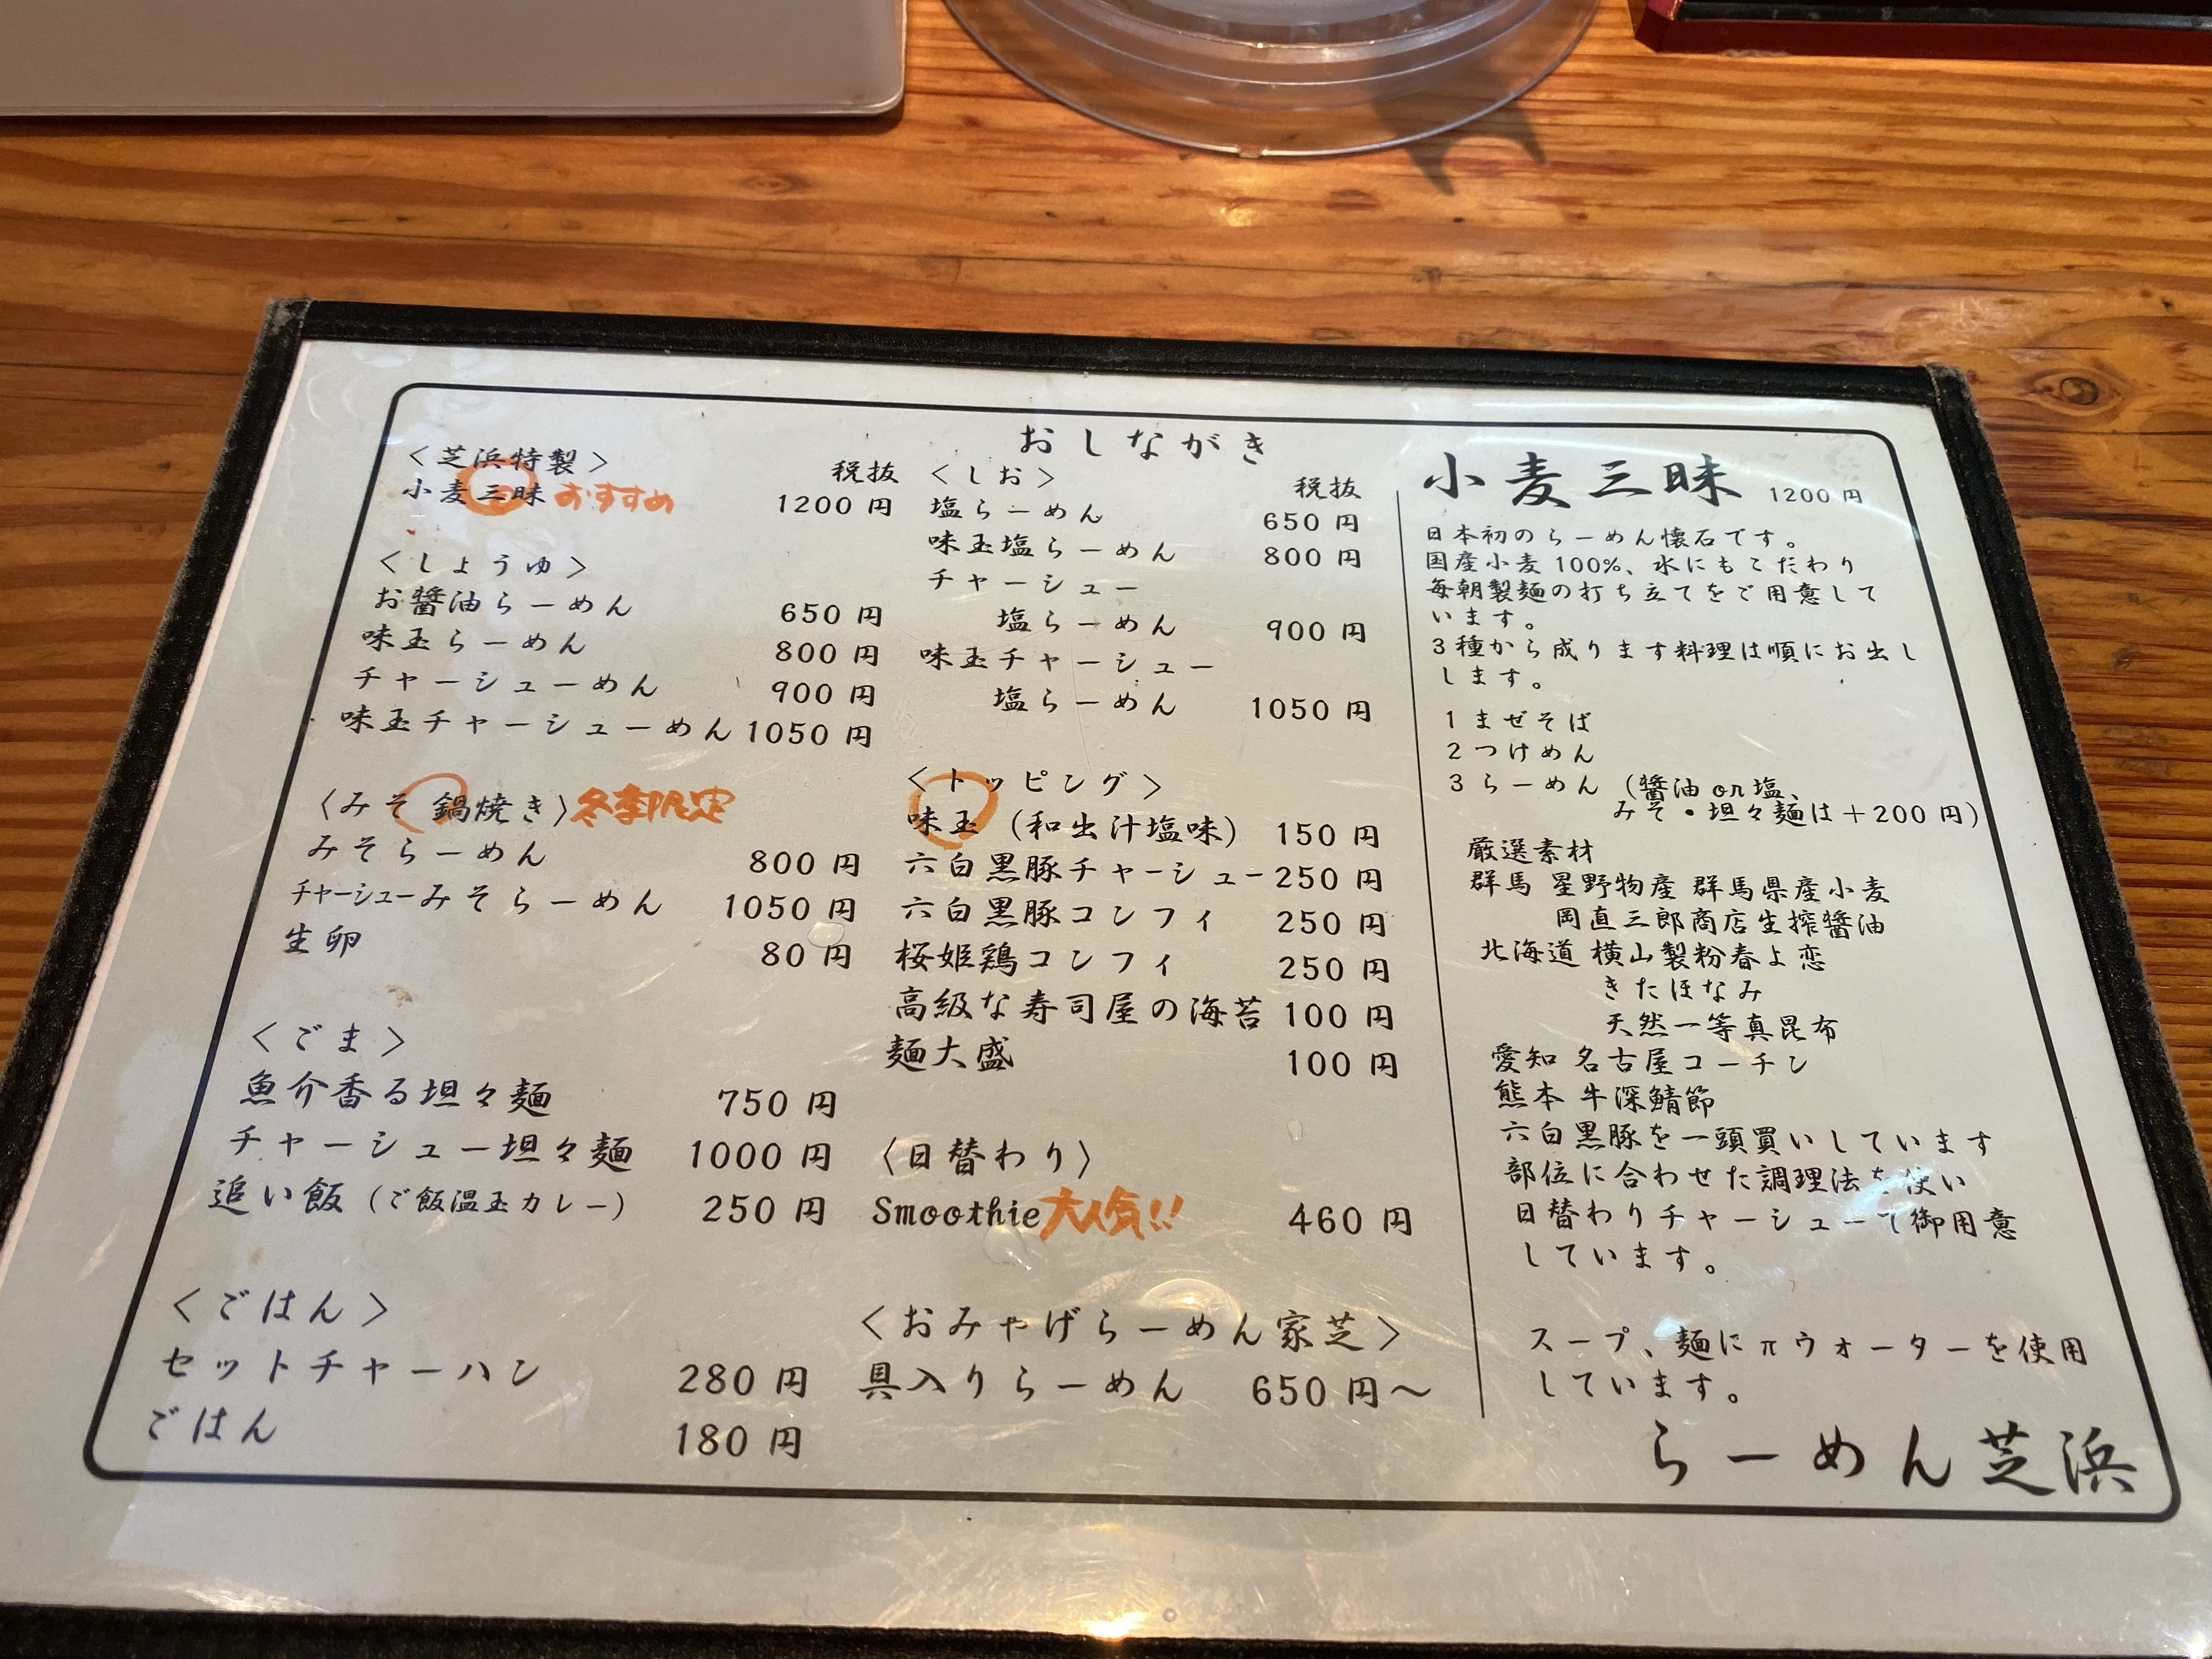 おしながき
<芝浜特製> 税抜
小麦三昧 おすすめ 1200円
<しょうゆ>
お醤油らーめん 650円
味玉らーめん 800円
チャーシューめん 900円
味玉チャーシューめん 1050円
<みそ 鍋焼き> 冬季限定
みそらーめん 800円
チャーシューみそらーめん 1050円
生卵 80円
<ごま>
魚介香る坦々麺 750円
チャーシュー坦々麺 1000円
追い飯(ご飯温玉カレー) 250円
<ごはん>
セットチャーハン 280円
ごはん 180円
<しお> 税抜
塩らーめん 650円
味玉塩らーめん 800円
チャーシュー
塩らーめん 900円
味玉チャーシュー
塩らーめん 1050円
<トッピング>
味玉(和出汁塩味) 150円
六白黒豚チャーシュー 250円
六白黒豚コンフィ 250円
桜姫鶏コンフィ 250円
高級な寿司屋の海苔 100円
麺大盛 100円
<日替わり>
Smoothie 大人気!! 460円
<おみやげらーめん家芝>
具入りらーめん 650円〜
小麦三昧 1200円
日本初のらーめん懐石です。
国産小麦100%、水にもこだわり
毎朝製麺の打ち立てをご用意して
います。
3種から成ります料理は順にお出し
します。
1 まぜそば
2 つけめん
3 らーめん (醤油or塩、
みそ・坦々麺は+200円)
厳選素材
群馬 星野物産 群馬県産小麦
岡直三郎商店生搾醤油
北海道 横山製粉春よ恋
きたほなみ
天然一等真昆布
愛知 名古屋コーチン
熊本 牛深鯖節
六白黒豚を一頭買いしています
部位に合わせた調理法を使い
日替わりチャーシューで御用意
しています。
スープ、麺にπウォーターを使用
しています。
らーめん芝浜